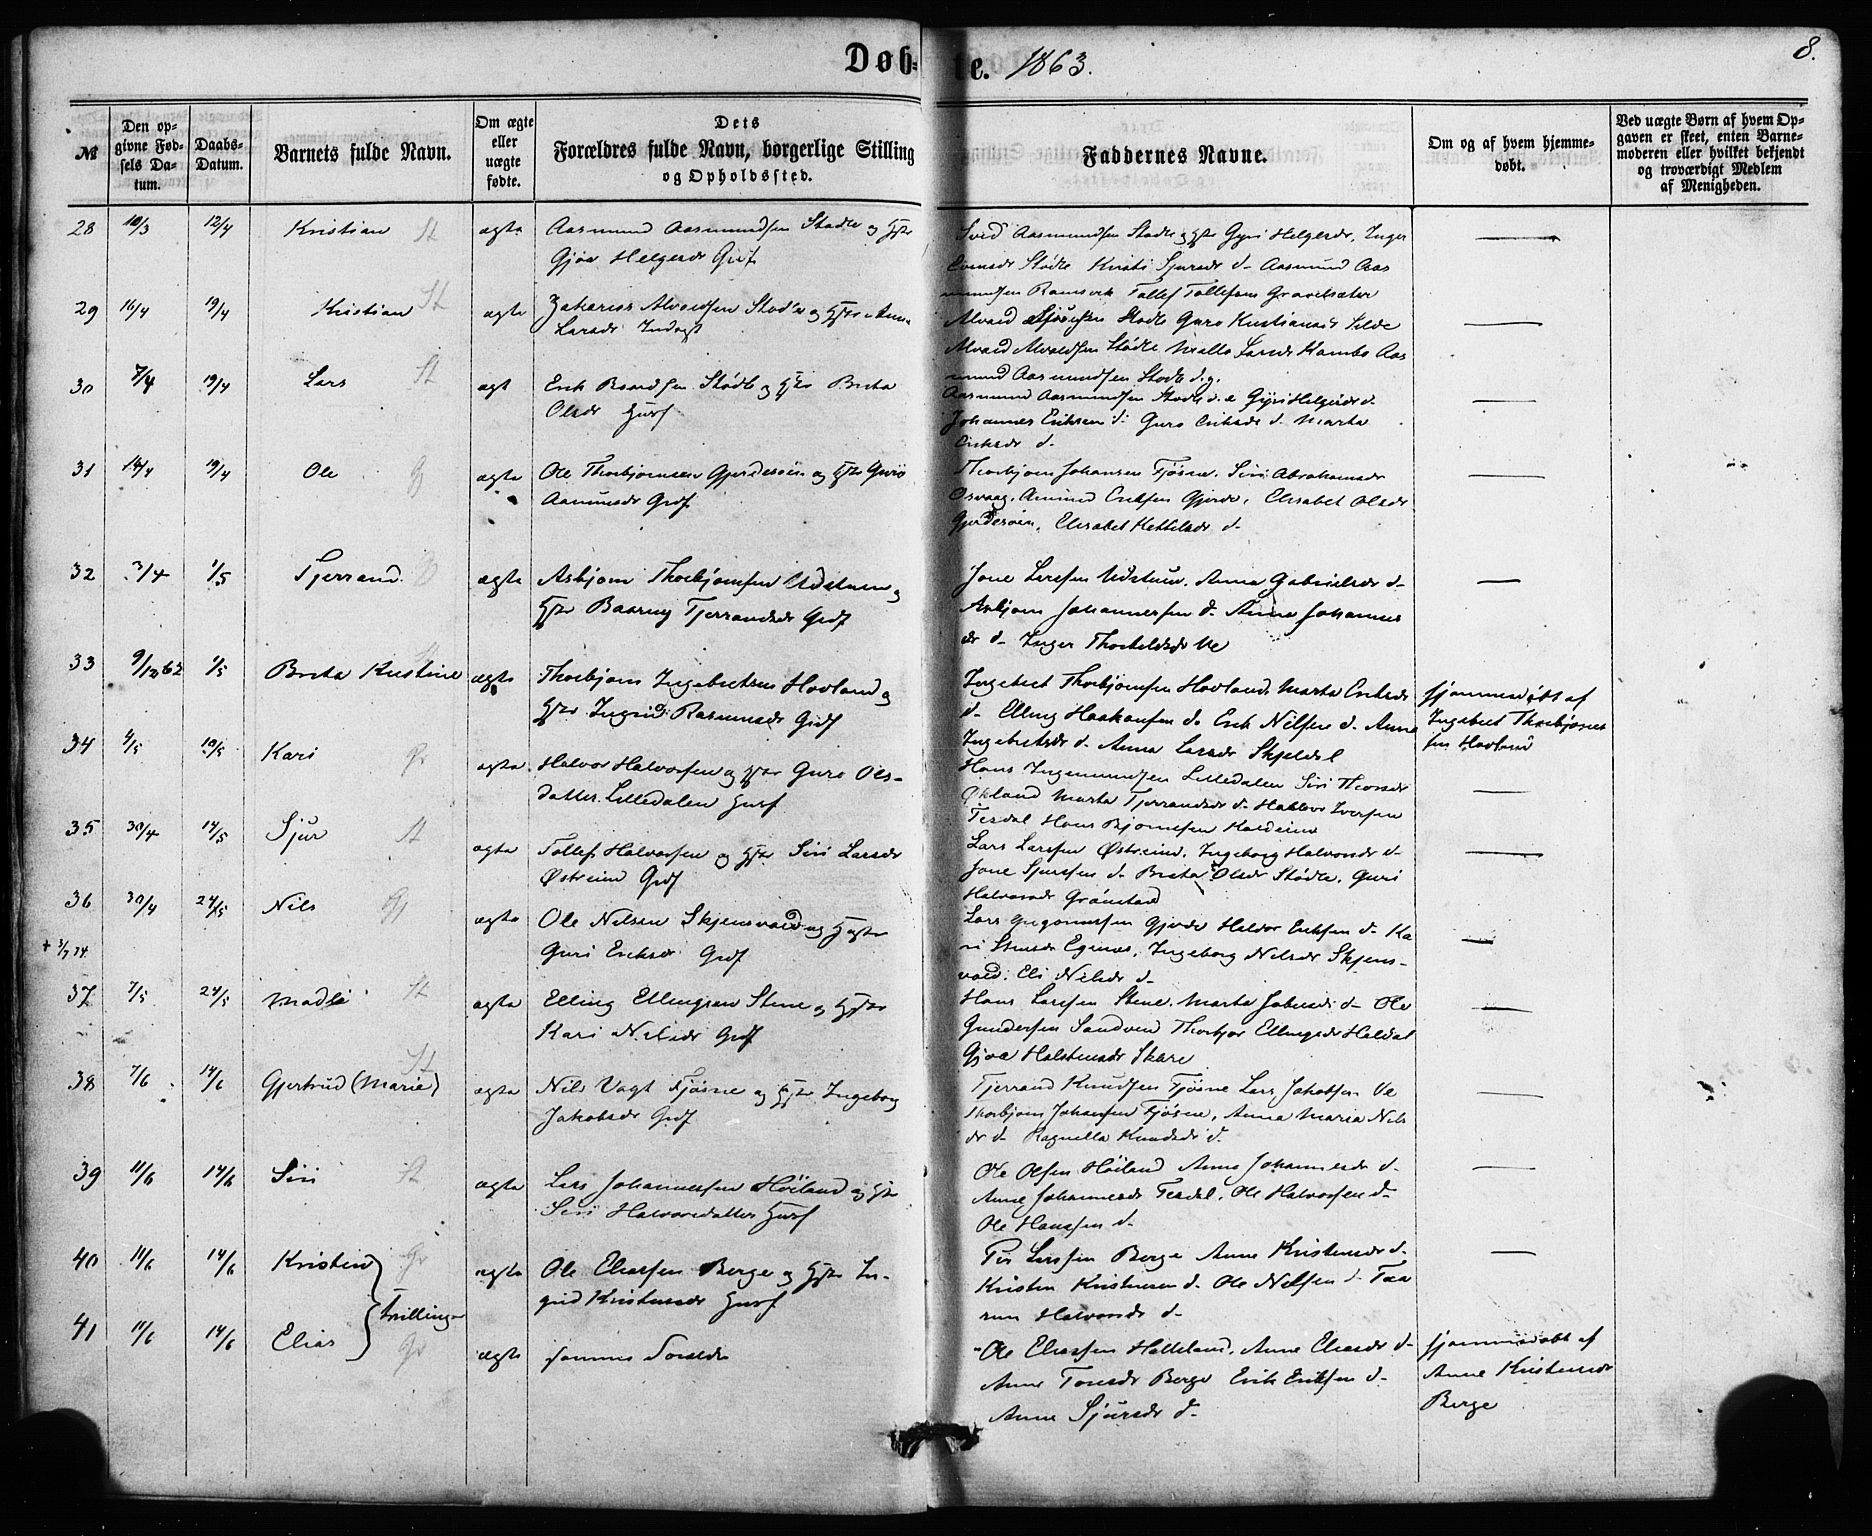 Døbte. 1863. 8.
№ | Den opgivne Fødsels Datum. | Daabs-Datum. | Barnets fulde Navn. | Om ægte eller uægte fødte. | Dets Forældres fulde Navn, borgerlige Stilling og Opholdssted. | Faddernes Navne. | Om og af hvem hjemmedøbt. | Ved uægte Børn af hvem Opgaven er skeet, enten Barnemoderen eller hvilket bekjendt og troværdigt Medlem af Menigheden.
28 10/3 12/4 Kristian St ægte Aasmund Aasmundsen Stødle og Hstr
Gjøa Helgesdr Grdf
Aasmundsen Stødle og Hstr Gyri Helgesdr, Inger
Stødle Kristi Sjursdr d- Aasmund Aas
mundsen Ramsvik Tollef Tollefsen
29 16/4 19/4 Kristian St ægte Zakarias Alvaldsen Stødle og Hstr Anna
Larsdr Inderst
Alvald Stødle Guro Kristiansdr
Alvald Alvaldsen Stødle Larsdr Kambo Aas
mund Aasmundsen Stødle
30 7/4 19/4 Lars St ægt Erik Baardsen Stødle og Hstr Brita
Olsdr Husf
Aasmund Aasmundsen Stødle Gyri Helgesdr d-
Johannes Eriksen d- Guro Eriksdr d- Marta
Eriksdr d-
31 14/4 19/4 Ole Gj ægte Ole Thorbjørnsen Gjerdesøen og Hstr Guro
Aamundsdr Grdf
Thorbjørn Johansen Fjøsne, Siri Abrahamsdr
Osvaag, Amund Eriksen Gjerde, Elisabet Olsdr
Gjerdesøen, Elisabet Kettelsdr d-
32 3/4 1/5 Tjerrand ægte Asbjørn Thorbjørnsen Udstuen og
Hstr Baarny Tjerrandsdr Grdf
Jone Larssen Udstuen, Anna Gabrielsdr d-
Asbjørn Johannessen d- Anna Johannes
dr d- Inger Thorkelsdr Ve
33 9/12 62 1/5 Brita Kristine ægte Thorbjørn Ingebretsen Hovland og
Hstr Ingrid Rasmusdr Grdf
Ingebret Thorbjørnsen Hovland, Marta Eriksdr
d- Elling Haakonsen d- Erik Nilsen d- Anna
Ingebretsdr d- Anna Larsdr Skjeldal
Hjemmedøbt af
Ingebret Thorbjørn
sen Hovland
34 4/5 10/5 Kari Gr ægte Halvor Halvorsen og Hstr Guro Ols-
datter Lilledalen Husf
Hans Ingemundsen Lilledalen Siri Thorsdr
Økland Marta Tjerrandsdr d- Halvor Iversen
Tesdal Hans Bjørnsen
35 30/4 14/5 Sjur St ægte Tollef Halvorsen og Hstr Siri Larsdr
Østreim Grdf
Lars Larssen Østreim, Ingeborg Halvorsdr d-
Jone Sjursen d- Brita Olsdr Stødle, Guri
Halvorsdr Grønstad
36 30/4 24/5 Nils Gj ægte Ole Nilsen Skjensvold og Hstr
Guri Eriksdr Grdf
Lars Gregoriussen Gjerde Haldor Eriksen d- Ka
ri Egenes, Ingeborg Nilsdr Skjens-
vold Eli Nilsdr d-
+ 3/7 74
37 7/5 24/5 Madle St ægte Elling Ellingsen Stene og Hstr
Kari Nilsdr Grdf
Hans Larssen Stene, Marta Jakobsdr d- Ole
Gundersen Sandven Thorbjør Ellingsdr Haldal
Gjøa Halstensdr Skare
38 7/6 14/6 Gjertrud (Marie) St ægte Nils Vagt Fjøsne og Hstr Ingeborg
Jakobsdr Grdf
Tjerrand Knudsen Fjøsne Lars Jakobsen Ve
Thorbjørn Johansen Fjøsne, Anna Maria Nils
dr d- Ragnilla Knudsdr d-
39 11/6 14/6 Siri St ægte Lars Johannessen Høiland og Hstr
Siri Halvorsdatter Husf
Ole Olsen Høiland Anna Johannesdr d-
Anne Johannesdr Tesdal, Ole Halvorsen d-
Ole Hanssen d-
40 11/6 14/6 Kristen Gr ægte Ole Eliassen Berge og Hstr In-
grid Kristensdr Husf
Per Larssen Berge Anne Kristensdr d-
Kristen Kristensen d- Ole Nilsen d- Taa
ran Halvorsdr d-
Tvillinger
41 11/6 14/6 Elias Gr ægte samme Foreldre
Ole Eliassen Helleland, Anne Eliasdr d-
Anne Tonsdr Berge Erik Eriksen d-
Anne Sjursdr d-
Hjemmedøbt af
Anne Kristensdr
Berge